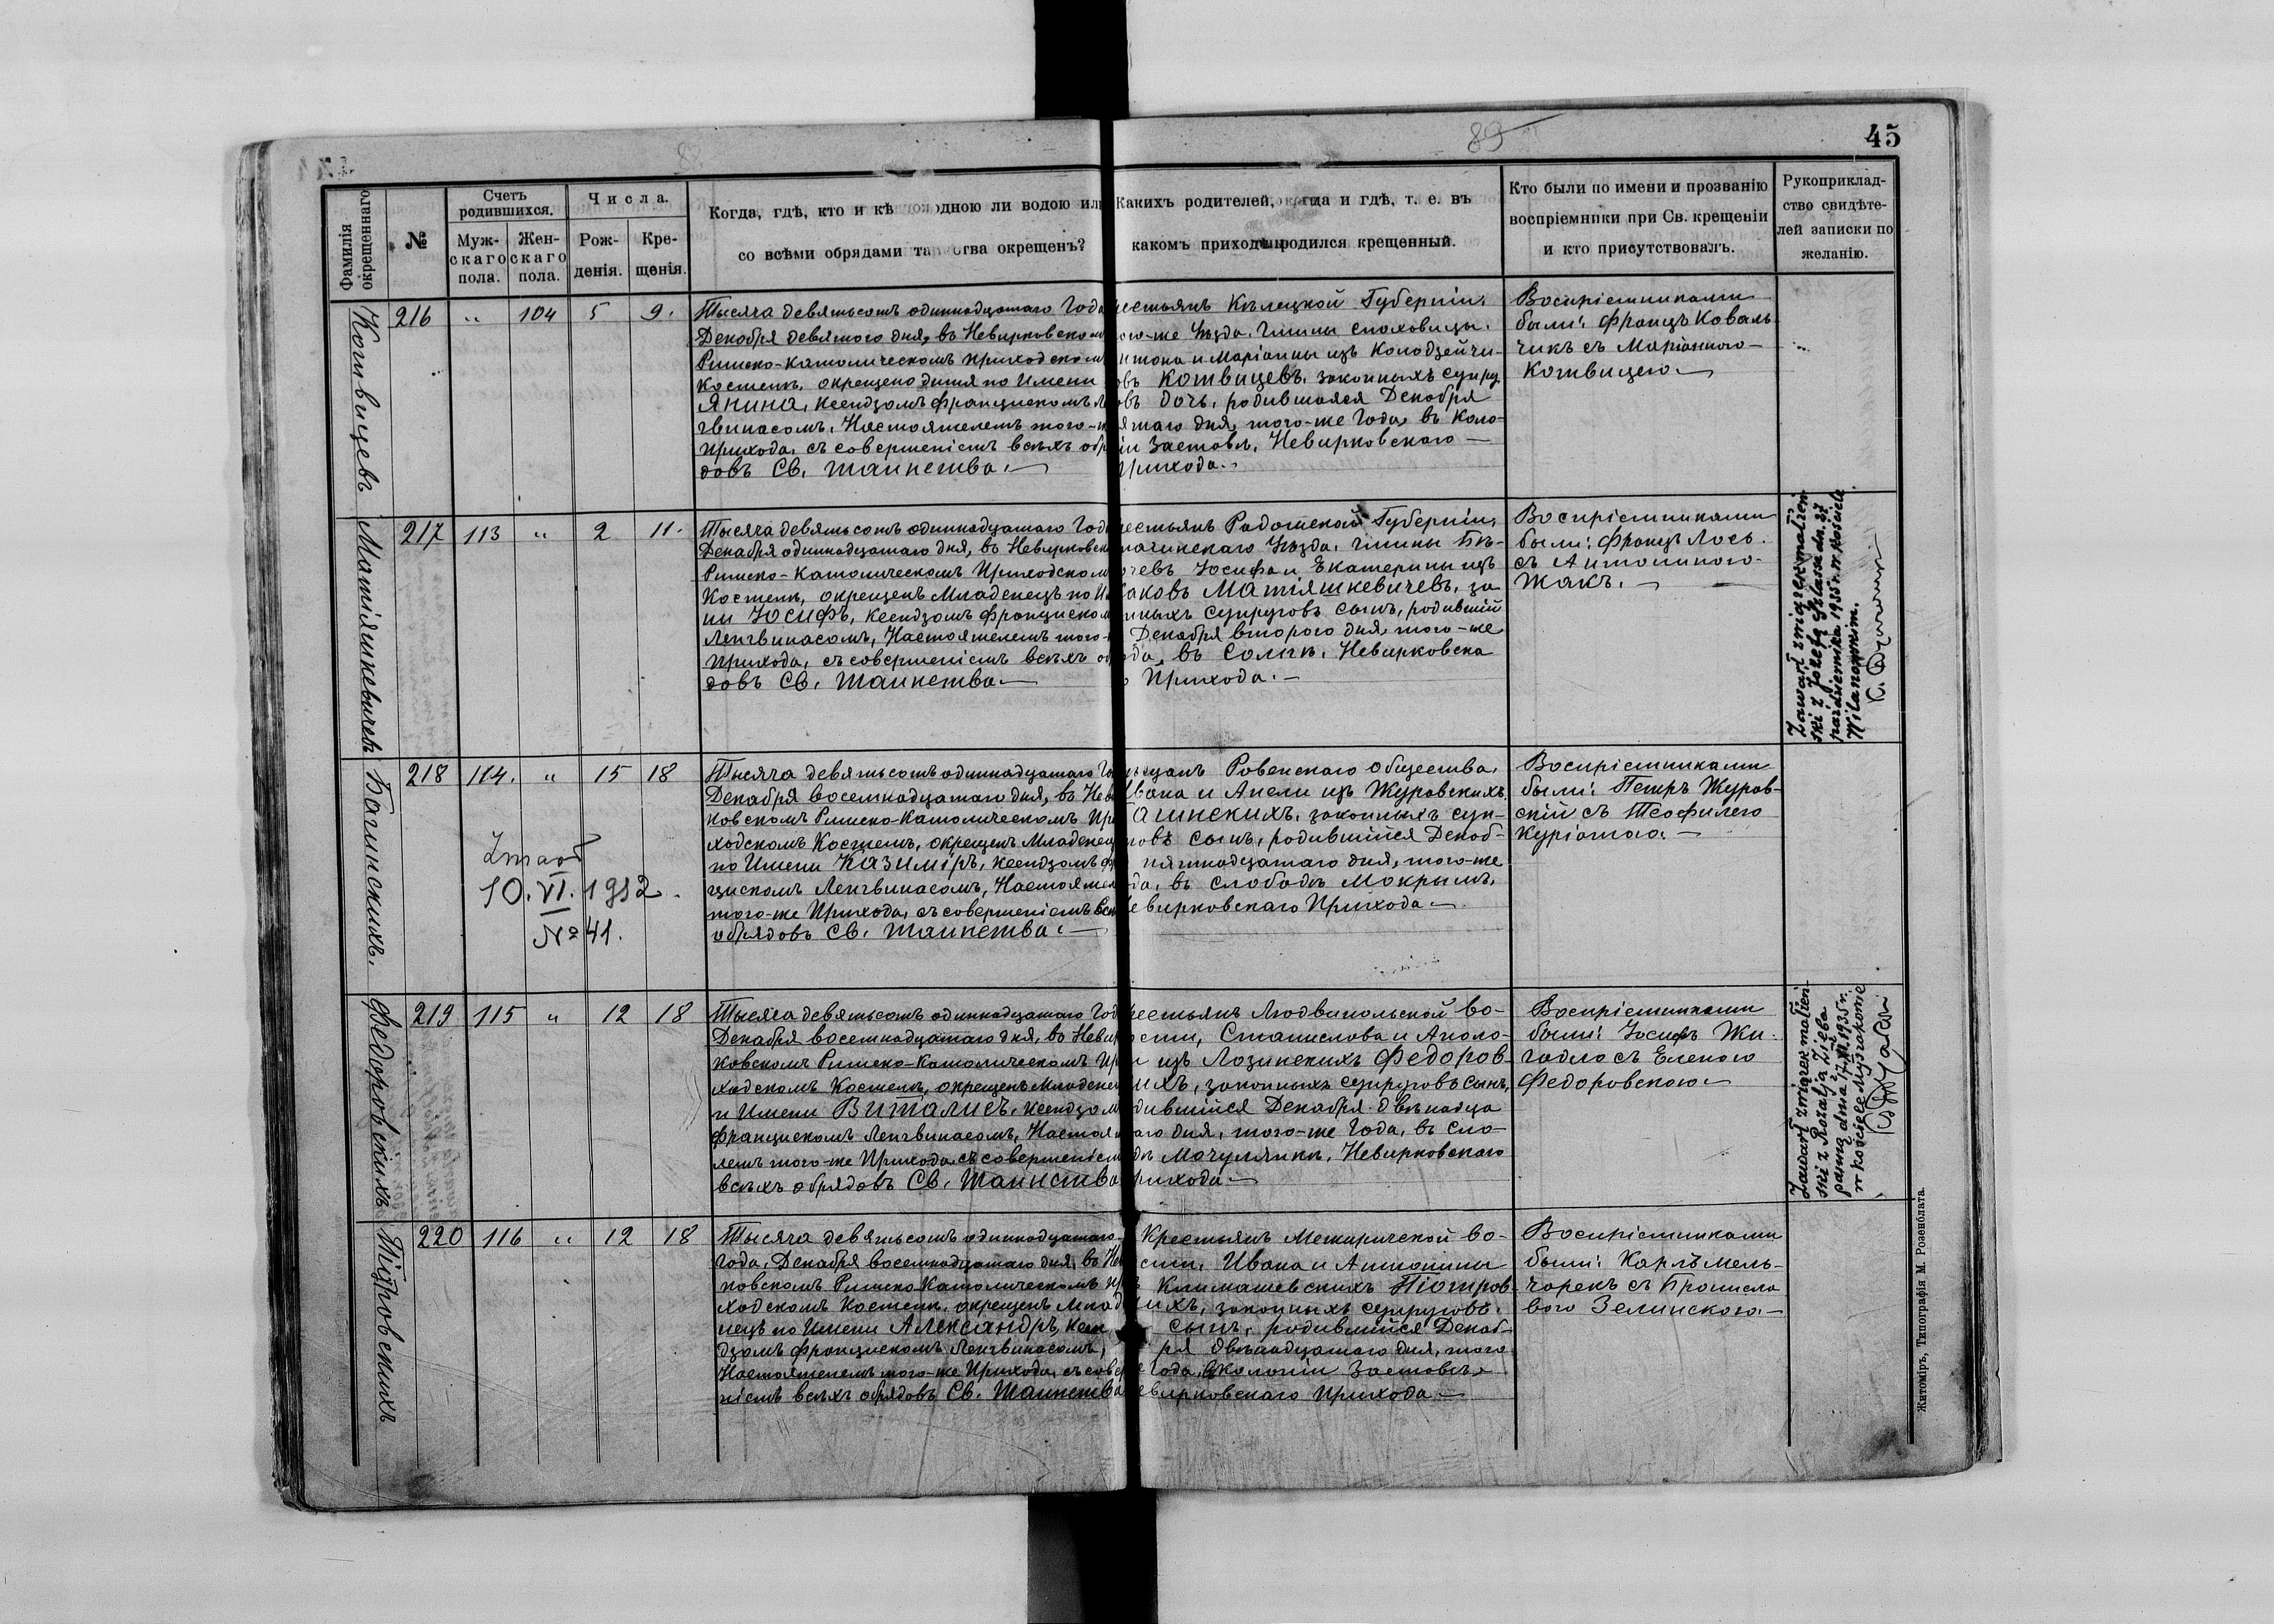 89
45
Фамилія окрещеннаго
№
Счетъ родившихся.
Муж-скаго пола.
Жен-скаго пола.
Числа.
Рож-денія.
Кре-щенія.
Когда, гдѣ, кто и
одною ли водою или
со всѣми обрядами та ства окрещенъ?
Какихъ родителей, когда и гдѣ, т. е. въ
какомъ приходѣ родился крещенный.
Кто были по имени и прозванію
воспріемники при Св. крещеніи
и кто присутствовалъ.
Рукоприклад-
ство свидѣте-
лей записки по
желанію.
Котвицевъ
216 " 104 5 9.
Тысяча девятьсотъ одиннадцатаго Года
Декабря девятого дня, въ Невирковском
Римско-Католическомъ приходском
Костелѣ, окрещено дитя по Имени
Янина, Ксендзомъ Францискомъ Ле
гвинасомъ, Настоятелемъ того-ж
прихода, съ совершеніемъ всѣхъ обр
довъ Св. Таинства.—
рестьянъ Кѣлецкой Губерніи,
ого-же Уѣзда, Гмины Споховицы,
нтона и Маріанны изъ Колодзейчи-
овъ Котвицевъ, законныхъ супру
овъ дочь, родившаяся Декабря
ятаго дня, того-же Года, въ Коло-
іи Заставѣ, Невирковскаго—
прихода.-
Воспріемниками
были: Францъ Коваль
чикъ съ Маріанною—
Котвицею.—
Матіяшкевичевъ
217 113 " 2 11.
Тысяча девятьсотъ одиннадцатаго Год
Декабря одиннадцатаго дня, въ Невирковск
Римско-Католическомъ Приходском
Костелѣ, окрещенъ Младенецъ по И
ни Юсифъ, Ксендзомъ Франциском
Ленгвинасомъ, Настоятелемъ того-
Прихода, съ совершеніемъ всѣхъ об
довъ Св. Таинства.—
рестьянъ Радомской Губерніи,
Уѣзда, Гмины Бѣ-
Юсифа и Екатерины изъ
аковъ Матіяшкевичевъ, за
нныхъ супруговъ сынъ, родившій
Декабря второго дня, того-же
ода, въ Невирковска
Прихода.—
Воспріемниками
были: Францъ Лось
съ Антониною-
Жакъ.—
Zawarł związek małżeń-
ski z Józefą
października 1935 r. w kościele
Багинскихъ.
218 114. " 15 18
Zmarł
10. VI. 1932.
№ 41.
Тысяча девятьсотъ одиннадцатаго Го
Декабря восемнадцатаго дня, въ Неви
ковскомъ Римско-Католическомъ При
ходскомъ Костелѣ, окрещенъ Младенец
по Имени Казиміръ, Ксендзомъ Фра
цискомъ Ленгвинасомъ, Настоятел
того-же Прихода, съ совершеніемъ Всѣ
обрядовъ Св. Таинства.—
ѣщанъ Ровенскаго общества,
вана и Анели изъ Журовскихъ
агинскихъ, законныхъ суп-
говъ сынъ, родившійся Декаб-
пятнадцатаго дня, того-же
да, въ слободѣ Мокрымъ,
евирковскаго Прихода.—
Воспріемниками
были: Петръ Журов-
скій съ Теофилею
Куріатою.—
Федоровскихъ
219 115 " 12 18
Тысяча девятьсотъ одиннадцатаго Год
Декабря восемнадцатаго дня, въ Невир
ковскомъ Римско-Католическомъ При
ходскомъ Костелѣ, окрещенъ Младене
и Имени Виталисъ, Ксендзом
Францискомъ Ленгвинасомъ, Настоя
лемъ того-же Прихода, съ совершеніем
всѣхъ обрядовъ Св. Таинства
рестьянъ Людвипольской во-
ости, Станислава и Аполо-
изъ Лозинскихъ Федоров
ихъ, законныхъ супруговъ сынъ,
дившійся Декабря двѣнадца
аго дня, того-же Года, въ сло-
дѣ Мочулянкѣ, Невирковскаго
рихода—
Воспріемниками
были: Юсифъ Жи-
гадло съ Еленою
Федоровскою.—
Zawarł związek małżeń-
ski z Rozalją
panną dnia 17 1935 r.
w kościele
Піотровскихъ
220 116 " 12 18
Тысяча девятьсотъ одиннадцатаго-
Года, Декабря восемнадцатаго дня, въ Не
ковскомъ Римско-Католическомъ Пр
ходскомъ Костелѣ, окрещенъ Млад
нецъ по Имени Александръ, Ксен
дзомъ Францискомъ Ленгвинасомъ,
Настоятелемъ того-же Прихода, съ совер
ніемъ всѣхъ обрядовъ Св. Таинства
Крестьянъ Межиричской во-
сти, Ивана и Антонины
Климашевскихъ Піотров-
ихъ, законныхъ супруговъ.
сынъ, родившійся Декаб-
ря двѣнадцатаго дня, того
Года, в Колоніи Заставѣ,
евирковскаго Прихода—
Воспріемниками
были: Карлъ Мель-
чарекъ съ Бронисла
вою Зелинскою.—
Житоміръ, Типографія М. Розенблата.